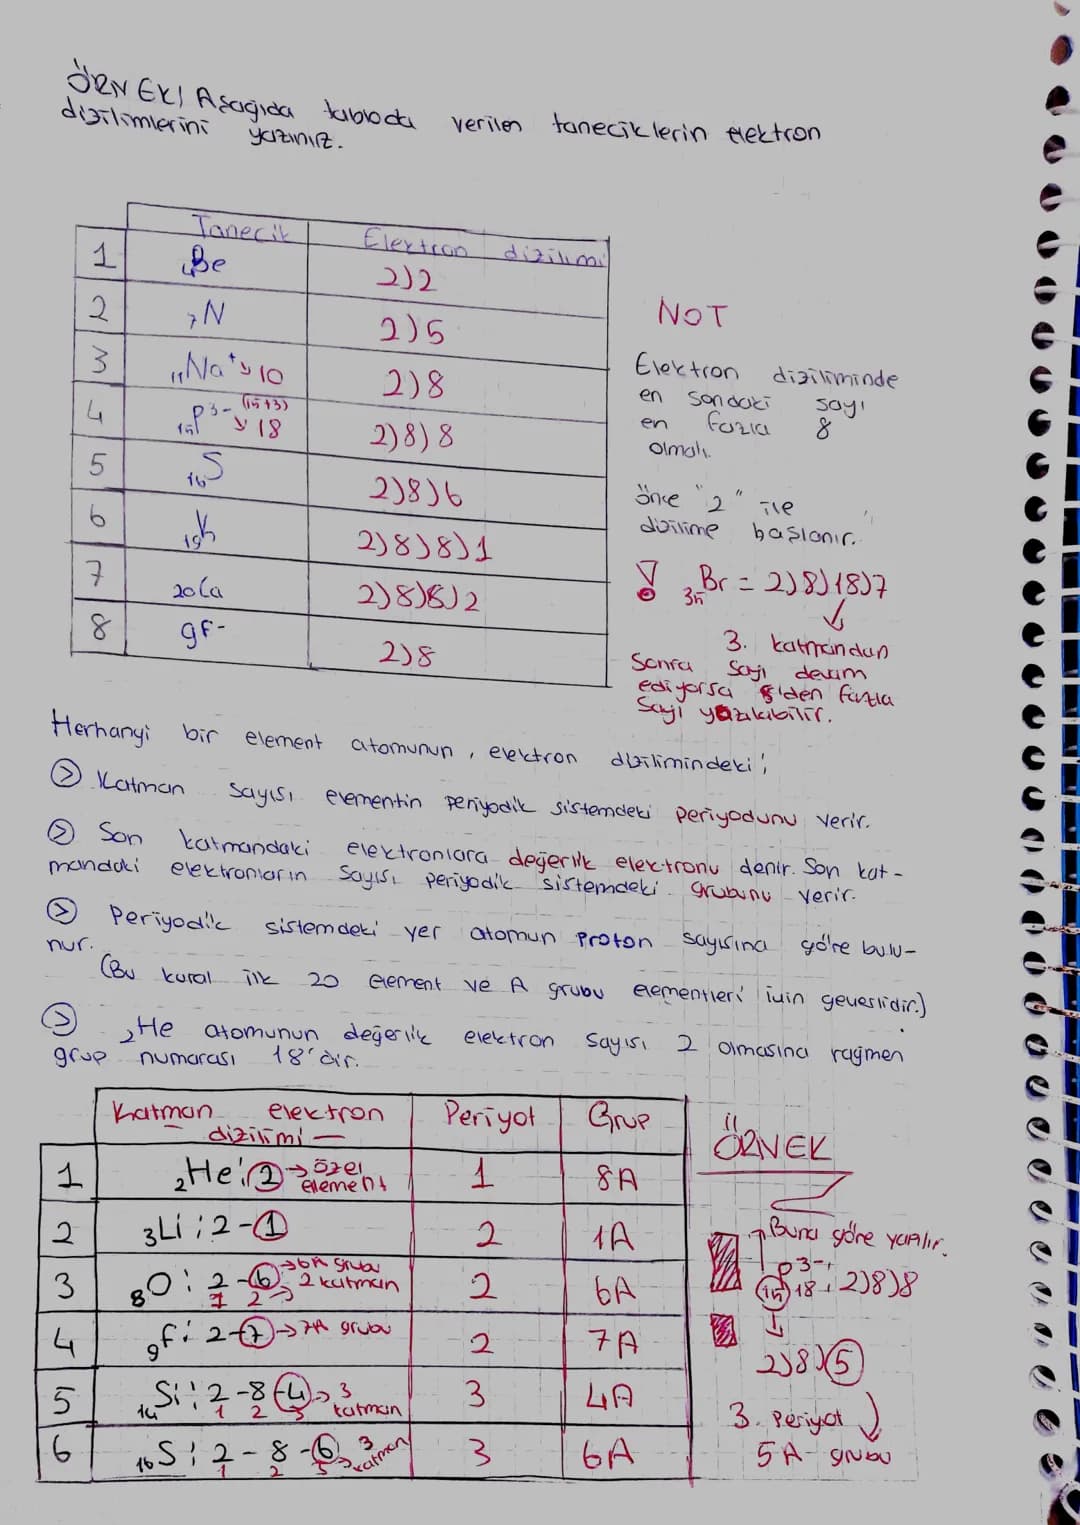 ÖRNEK! Aşağıda tabloda verilen taneciklerin elektron
dizilimlerini yazınız.
Tanecik Elektron dizilimi
1 4Be 2)2
2 7N 2)5
3 11Na+ → 10 2)8
4 15P3- (15+3) → 18 2)8)8
5 16S 2)8)6
6 19K 2)8)8)1
7 20Ca 2)8)8)2
8 9F- 2)8
NOT
Elektron diziliminde
en sondaki sayı
en fazla 8
olmalı.
Önce "2" ile
dizilime başlanır.
! 35Br = 2)8)18)7
3. katmandan
Sonra sayı devam
ediyorsa 8'den fazla
sayı yazılabilir.
Herhangi bir element atomunun, elektron dizilimindeki;
> Katman sayısı elementin periyodik sistemdeki periyodunu verir.
> Son katmandaki elektronlara değerlik elektronu denir. Son kat-
mandaki elektronların sayısı periyodik sistemdeki grubunu verir.
> Periyodik sistemdeki yer atomun proton sayısına göre bulu-
nur.
(Bu kural ilk 20 element ve A grubu elementleri için geçerlidir.)
> 2He atomunun değerlik elektron sayısı 2 olmasına rağmen
grup numarası 18'dir.
Katman elektron dizilimi Periyot Grup
1 2He: 2 → özel element 1 8A
2 3Li: 2-1 2 1A
3 8O: 2-6 → 6A grubu 2 6A
1 2 → 2 katman
4 9F: 2-7 → 7A grubu 2 7A
5 14Si: 2-8-4 → 3 katman 3 4A
1 2 3
6 16S: 2-8-6 3 katman 3 6A
1 2 3
ÖRNEK
Buna göre yapılır.
15P3-: 18: 2)8)8
2)8)5
3. Periyot
5A grubu